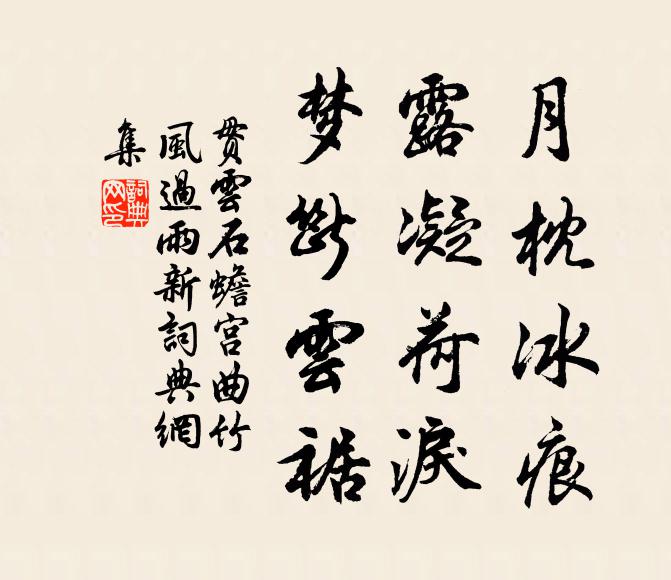 月枕冰痕
露凝荷淚
梦斷雲裾
貫雲石蟾宫曲竹
風過雨新詞典網
集
詞典
网印